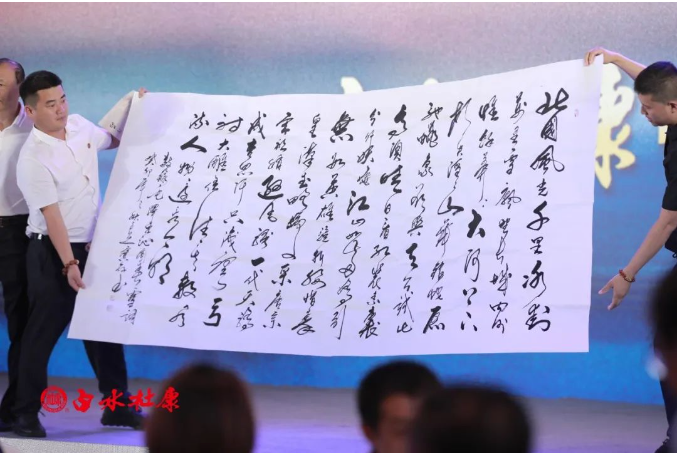 北国风光千里冰封
万里雪飘望长城内外
惟余莽莽大河上下
顿失滔滔山舞银蛇原
驰蜡象欲与天公试比
高须晴日看红装素裹
分外妖娆江山如此多娇引
無数英雄竞折腰惜秦
皇汉武略输文采唐宗
宋祖稍逊风骚一代天骄
成吉思汗只识弯弓
射大雕俱往矣数风
流人物还看今朝
毛泽东沁园春雪词
康
白水杜康